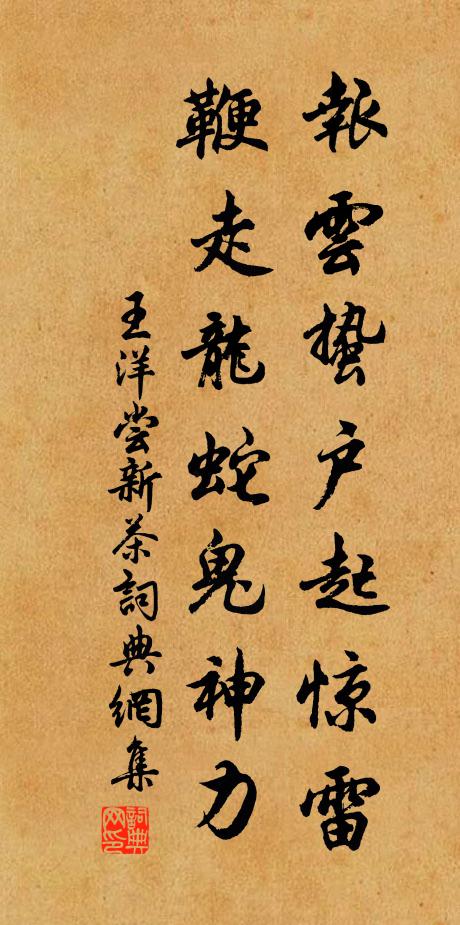 報雲蟄户起惊雷
鞭走龍蛇鬼神力
王洋尝新茶詞典網集
詞典网印